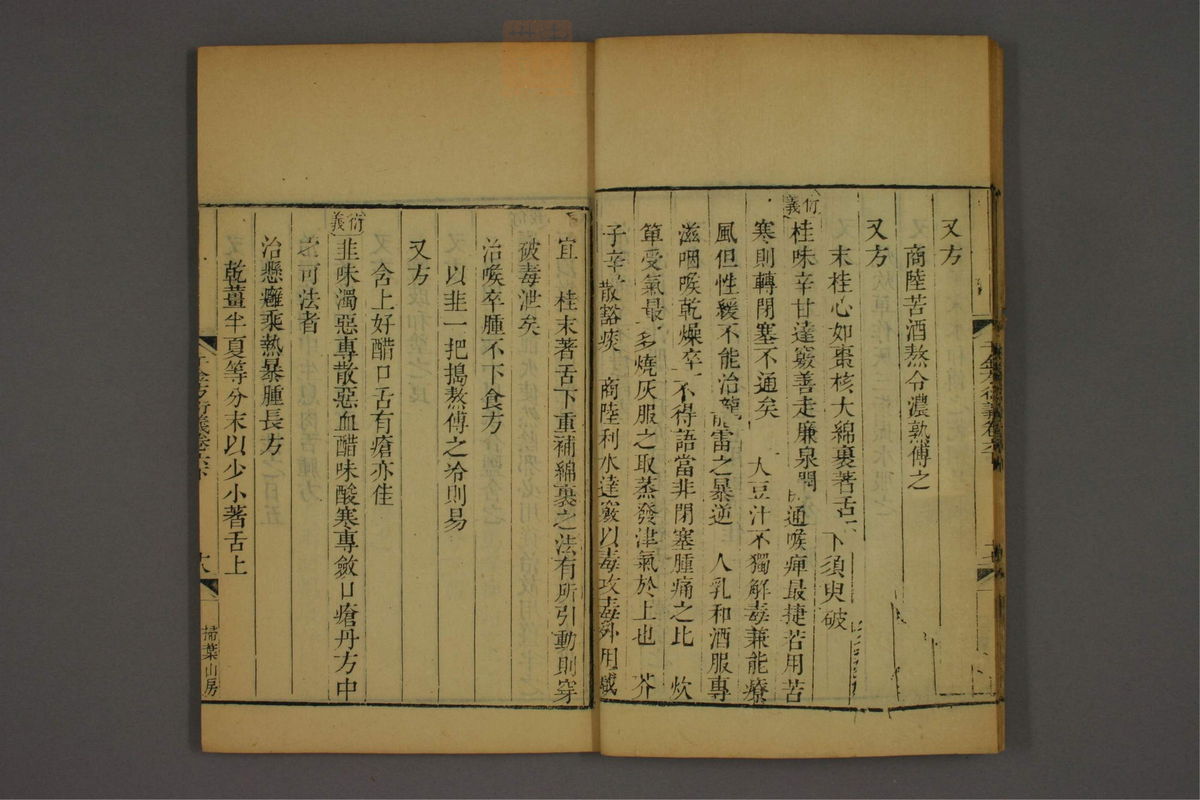 又方
商陸苦酒熬令濃熟傅之
又方
末桂心如棗核大綿裹著舌下須臾破
衍義
桂味辛甘達竅善走廉泉開通喉痺最捷若用苦
寒則轉閉塞不通矣 大豆汁不獨解毒兼能療
風但性緩不能冶龍雷之暴逆 人乳和酒服專
滋咽喉乾燥卒不得語當非閉塞腫痛之比 炊
箄受氣最多燒灰服之取蒸發津氣於上也 芥
子辛散豁痰 商陸利水達竅以毒攻毒舜用
千金方衍義卷六
宜 桂末著舌下重補綿裹之法有所引動則穿
破毒泄矣
治喉卒腫不下食方
以韭一把搗熬傅之冷則易
又方
含上好醋口舌有瘡亦佳
衍義
韭味濁惡專散惡血醋味酸寒專斂口瘡丹方中
可法者
治懸癰垂熱暴腫長方
乾薑半夏等分末以少小著舌上
千金方衍義卷六下
掃葉山房